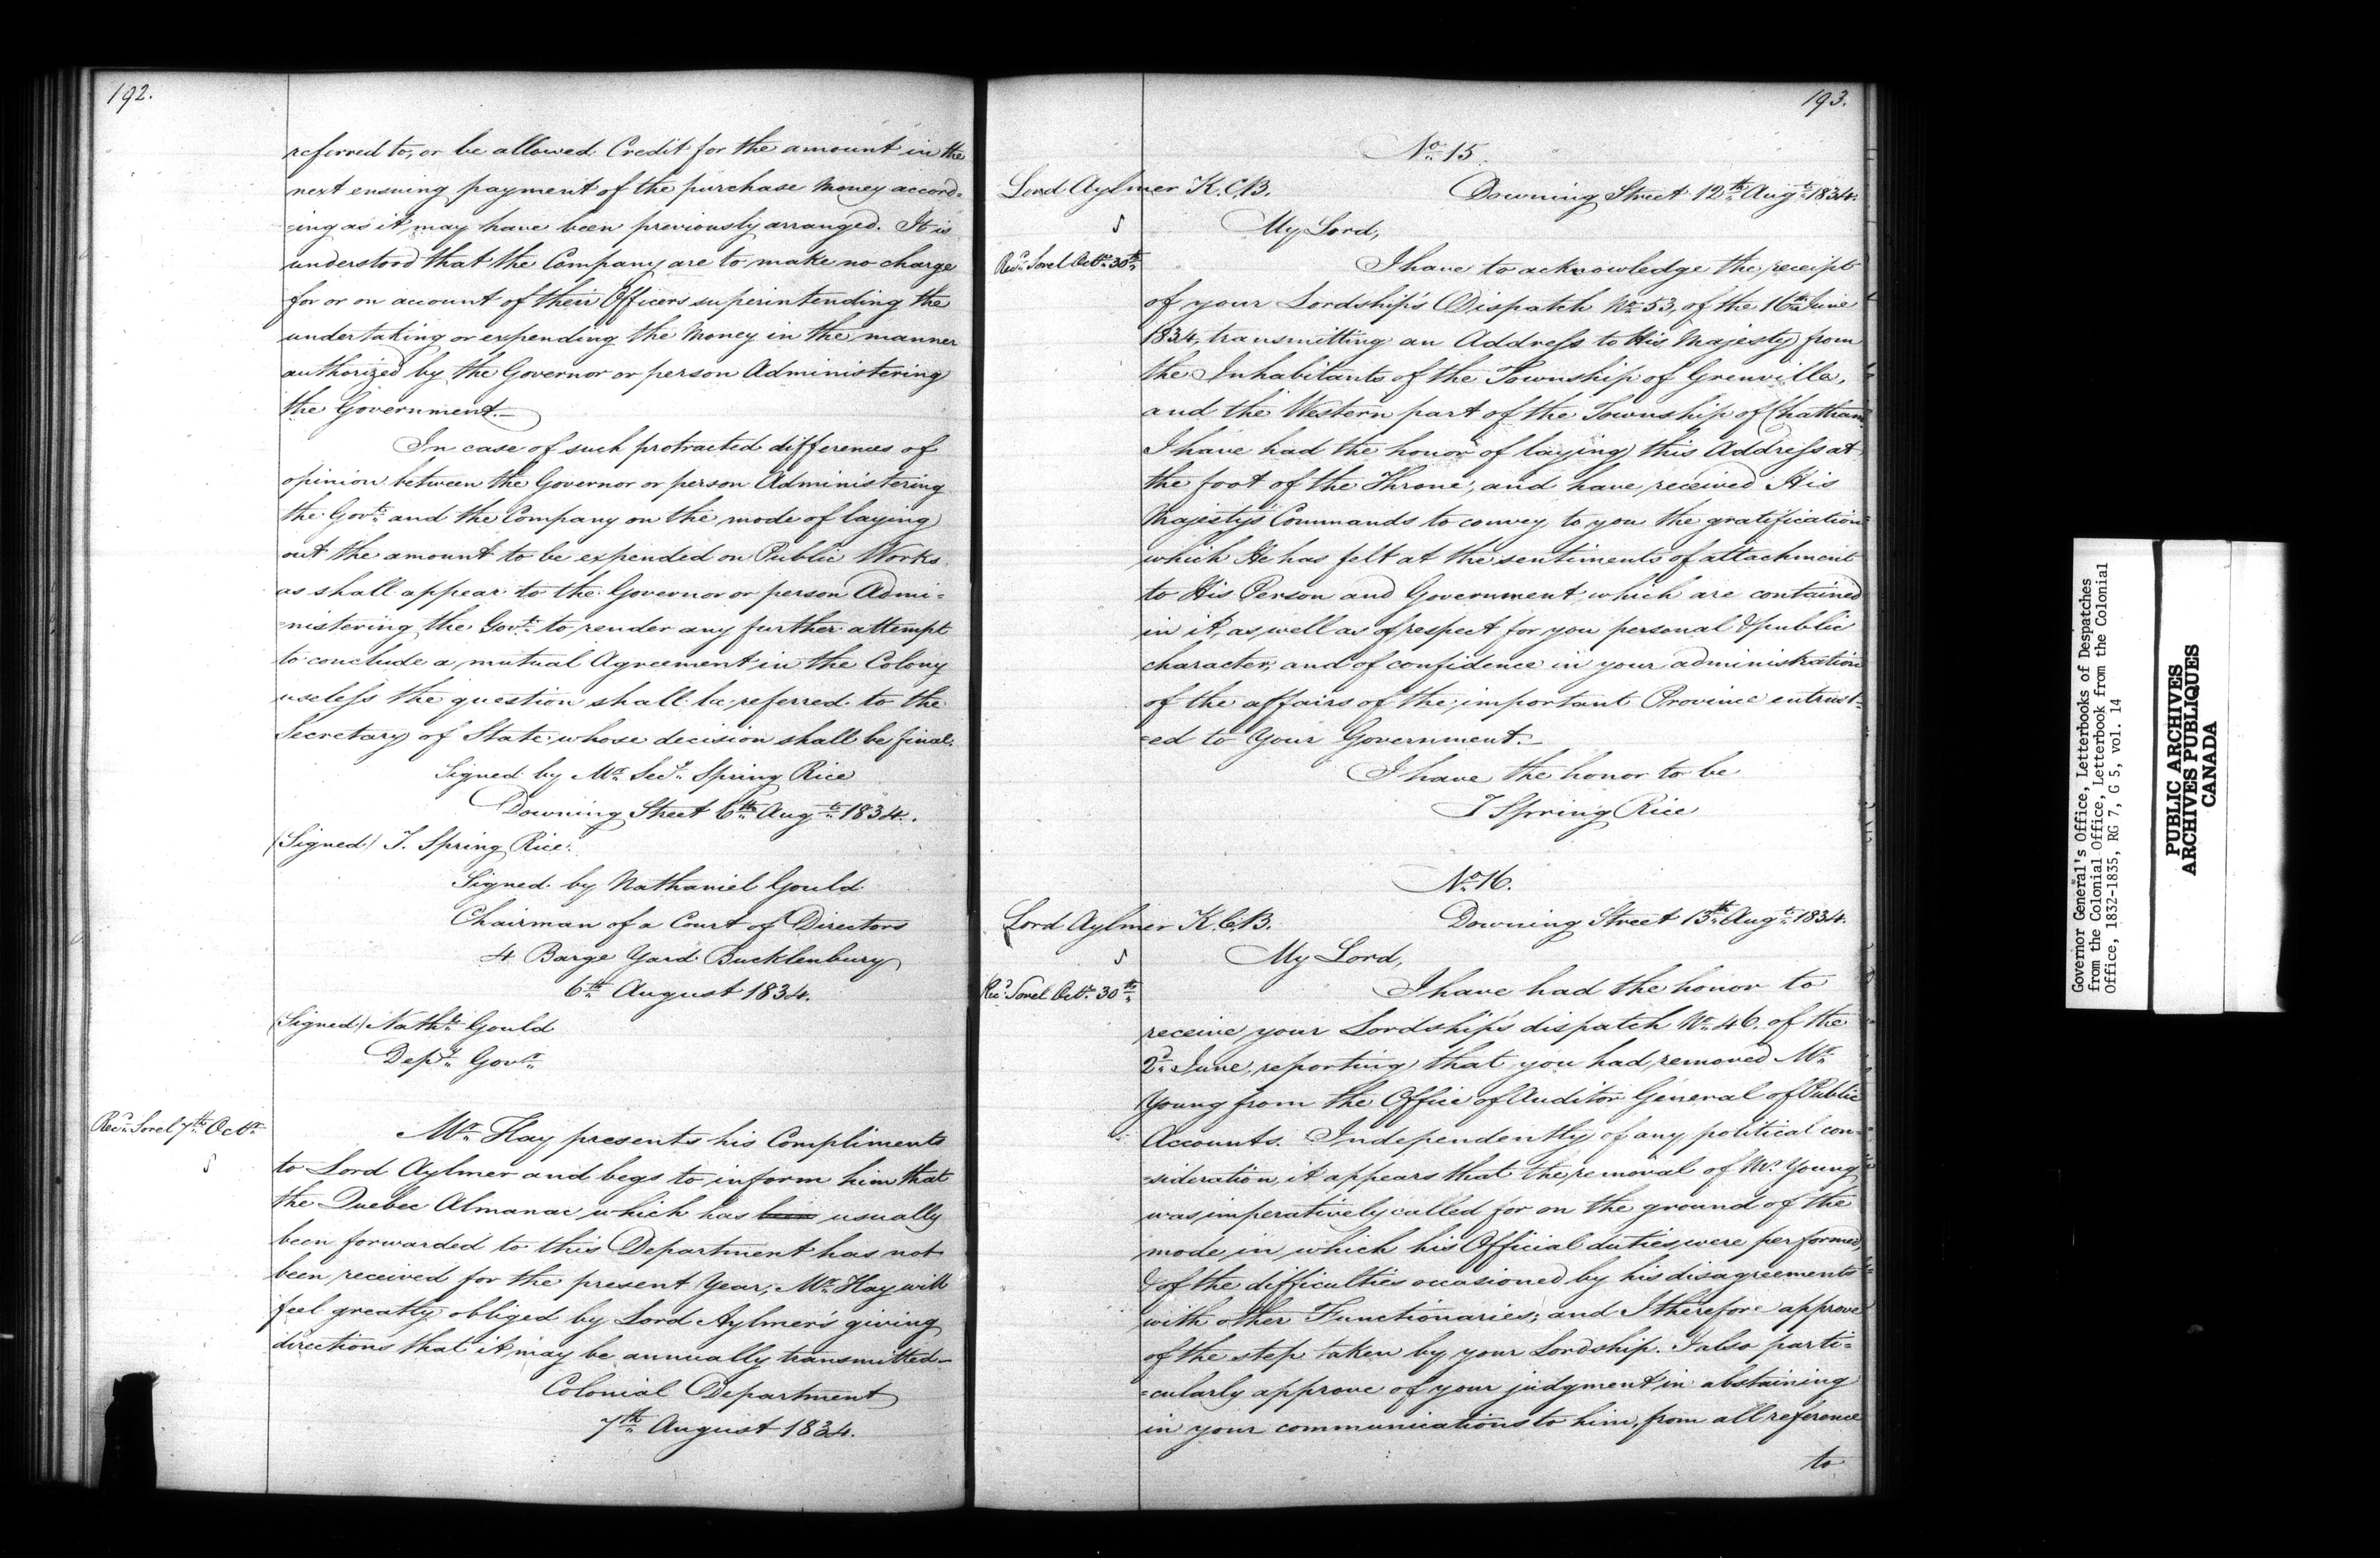 192.
referred to, or be allowed Credit for the amount in the
next ensuing payment of the purchase Money accord-
=ing as it may have been previously arranged. It is
understood that the Company are to make no charge
for or on account of their Officers superintending the
undertaking or expending the Money in the manner
authorized by the Governor or person Administering
the Government.
In case of such protracted differences of
opinion between the Governor or person Administering
the Govt. and the Company on the mode of laying
out the amount to be expended on Public Works
as shall appear to the Governor or person Admi=
=nistering the Govt. to render any further attempt
to conclude a mutual Agreement in the Colony
useless the question shall be referred to the
Secretary of State whose decision shall be final.
Signed by Mr. Secy. Spring Rice
Downing Street 6th Augt. 1834.
(Signed) T. Spring Rice.
Signed by Nathaniel Gould
Chairman of a Court of Directors
4 Barge Yard Bucklenbury
6th August 1834.
(Signed) Nathl. Gould
Depy. Govr.
Recd. Sorel 7th Octr.
Mr. Hay presents his Compliments
to Lord Aylmer and begs to inform him that
the Quebec Almanac which has been usually
been forwarded to this Department has not
been received for the present Year; Mr. Hay will
feel greatly obliged by Lord Aylmer's giving
directions that it may be annually transmitted-
Colonial Department
7th August 1834.
193.
No. 15.
Lord Aylmer K.C.B. Downing Street 12th Augt. 1834.
My Lord,
Recd. Sorel Octr. 30th
I have to acknowledge the receipt
of your Lordship's Dispatch No. 53, of the 16th June
1834, transmitting an Address to His Majesty from
the Inhabitants of the Township of Grenville,
and the Western part of the Township of Chatham
I have had the honor of laying this Address at
the foot of the Throne, and have received His
Majesty's Commands to convey to you the gratification
which He has felt at the sentiments of attachment
to His Person and Government which are contained
in it, as well as of respect for you personal & public
character, and of confidence in your administration
of the affairs of the important Province entrust-
=ed to Your Government.
I have the honor to be
T Spring Rice
No. 16.
Lord Aylmer K.C.B. Downing Street 13th Augt. 1834.
My Lord,
Recd. Sorel Octr. 30th
I have had the honor to
receive your Lordship's dispatch No. 46. of the
2d. June, reporting that you had removed Mr.
Young from the Office of Auditor General of Public
Accounts. Independently of any political con-
=sideration, it appears that the removal of Mr. Young
was imperatively called for on the ground of the
mode in which his Official duties were performed,
& of the difficulties occasioned by his disagreements
with other Functionaries; and I therefore approve
of the step taken by your Lordship. I also parti=
=cularly approve of your judgment in abstaining
in your communications to him, from all reference
to
Governor General's Office, Letterbooks of Despatches
from the Colonial Office, Letterbook from the Colonial
Office, 1832-1835, RG 7, G 5, vol. 14
PUBLIC ARCHIVES
ARCHIVES PUBLIQUES
CANADA